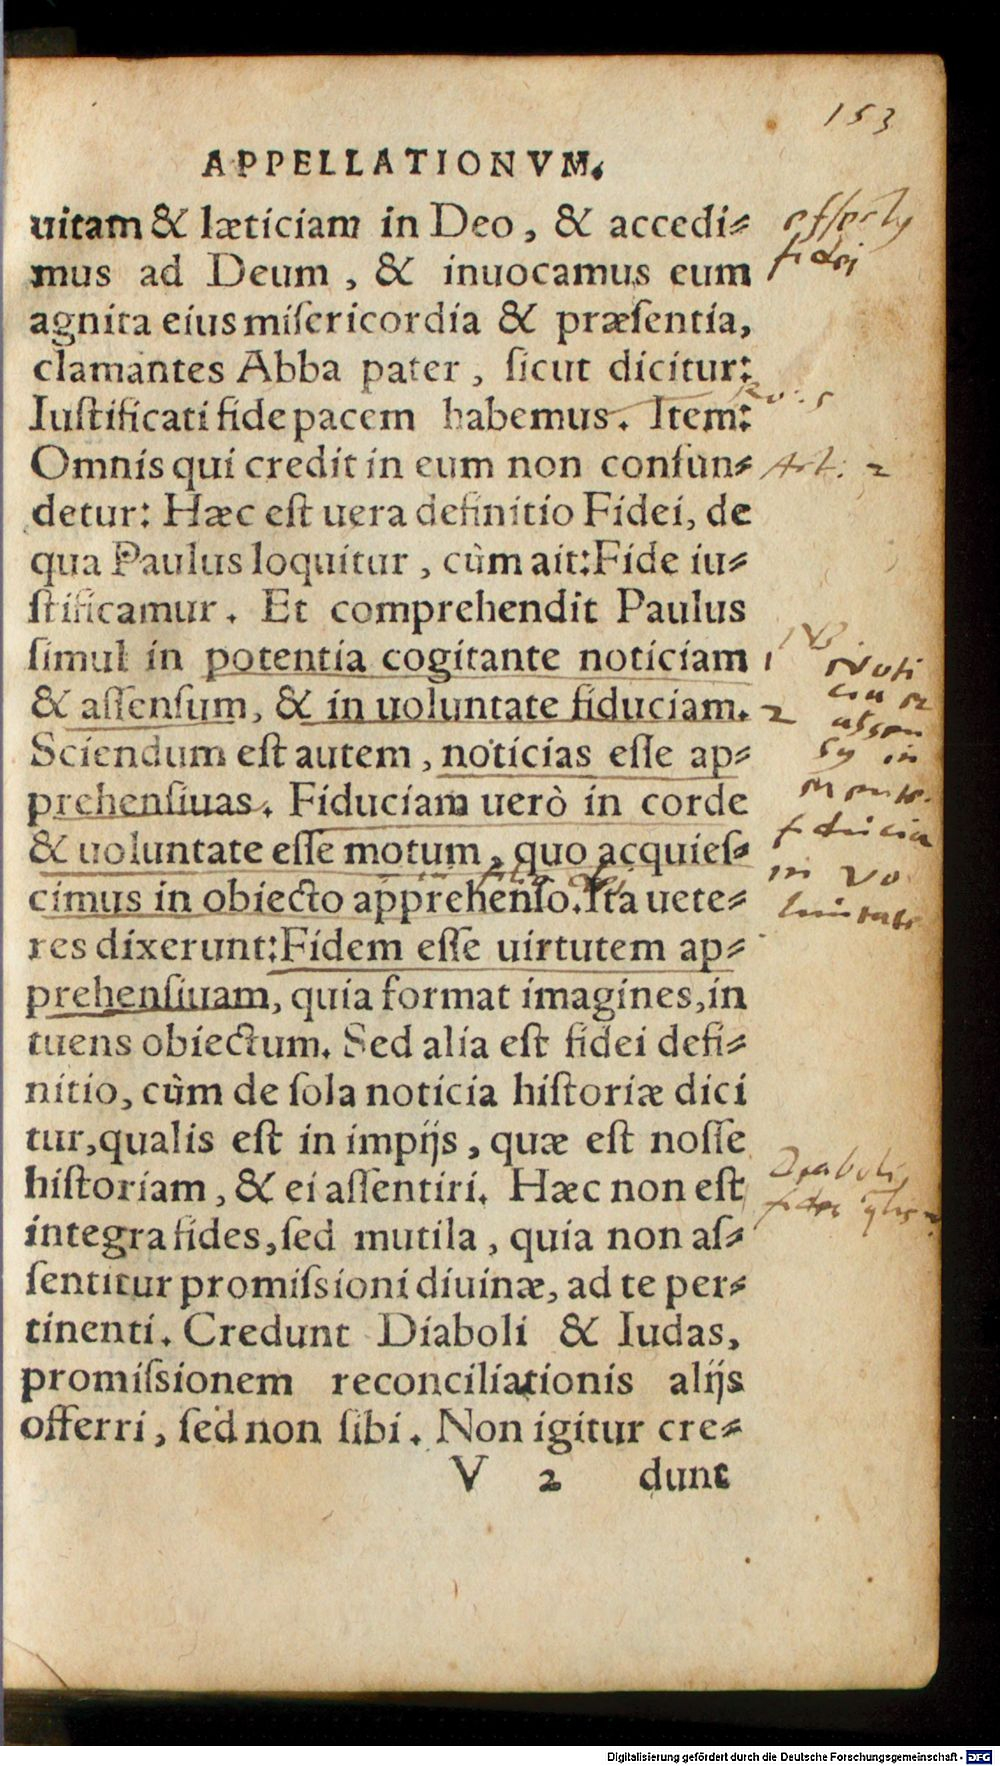 153
APPELLATIONVM.
uitam & læticiam in Deo, & accedi-
mus ad Deum, & inuocamus eum
agnita eius miſericordia & præſentia,
clamantes Abba pater, ſicut dicitur:
Iuſtificati fide pacem habemus. Item:
Omnis qui credit in eum non confun-
detur: Hæc eſt uera definitio Fidei, de
qua Paulus loquitur, cùm ait: Fide iu-
ſtificamur. Et comprehendit Paulus
ſimul in potentia cogitante noticiam
& aſſenſum, & in uoluntate fiduciam.
Sciendum eſt autem, noticias eſſe ap-
prehenſiuas. Fiduciam uerò in corde
& uoluntate eſſe motum, quo acquieſ-
cimus in obiecto apprehenſo. Ita uete-
res dixerunt: Fidem eſſe uirtutem ap-
prehenſiuam, quia format imagines, in
tuens obiectum. Sed alia eſt fidei defi-
nitio, cùm de ſola noticia hiſtoriæ dici
tur, qualis eſt in impijs, quæ eſt noſſe
hiſtoriam, & ei aſſentiri. Hæc non eſt
integra fides, ſed mutila, quia non aſ-
ſentitur promiſsioni diuinæ, ad te per-
tinenti. Credunt Diaboli & Iudas,
promiſsionem reconciliationis alijs
offerri, ſed non ſibi. Non igitur cre-
V 2 dunt
fidei
Ro. 5
2
NB
1 Noti
cia
2
in
fiducia
in vo
luntate
Diaboli
fides
Digitalisierung gefördert durch die Deutsche Forschungsgemeinschaft - DFG